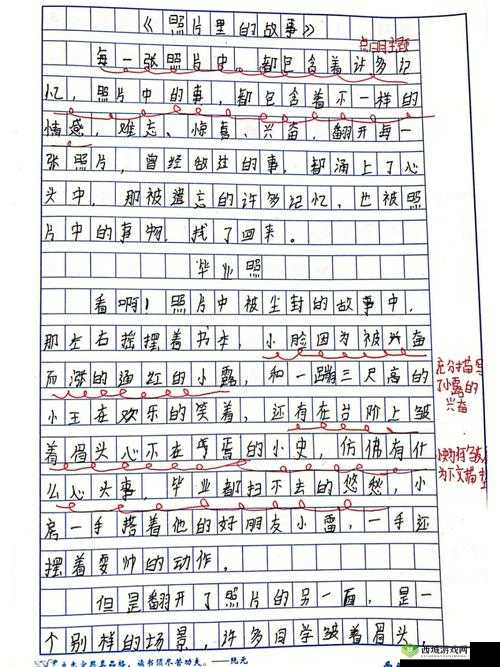 《照片里的故事》
点明主题
每一张照片中,都包含着许多记
忆,照片中的事,都包含着不一样的
情感,难忘、惊喜、兴奋,翻开每一
张照片,曾经做过的事,都涌上了心
头中,那被遗忘的许多记忆,也被照
片中的事物,找了回来。
毕业照
看啊!照片中被尘封的故事中,
那左右摇摆着书本,小脸因为被兴奋
而涨的通红的小露,和一蹦三尺高的
小王在欢乐的笑着,还有在台阶上皱
着眉头心不在焉的小史,仿佛有什
么心头事,毕业都扫不去的忧愁,小
房一手搭着他的好朋友小雷,一手还
摆着耍帅的动作。
但是翻开了照片的另一面,是一
个别样的场景,许多同学皱着眉头
充分描写
小露的
兴奋
为下文
读书须尽苦功夫。——阮元
西域游戏网